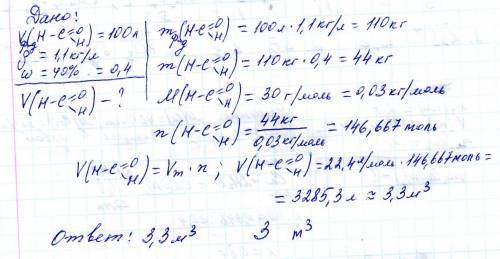 Дано:
V(H-C=O H) = 100л
ρ = 1,1 кг/л
ω = 40% = 0,4
V(H-C=O H) - ?
m р-р (H-C=O H) = 100л · 1,1 кг/л = 110 кг
m(H-C=O H) = 110 кг · 0,4 = 44 кг
M(H-C=O H) = 30 г/моль = 0,03 кг/моль
n(H-C=O H) = 44 кг / 0,03 кг/моль = 146,667 моль
V(H-C=O H) = Vm · n ; V(H-C=O H) = 22,4 л/моль · 146,667 моль =
= 3285,3 л ≈ 3,3 м³
Ответ: 3,3 м³ 3 m³